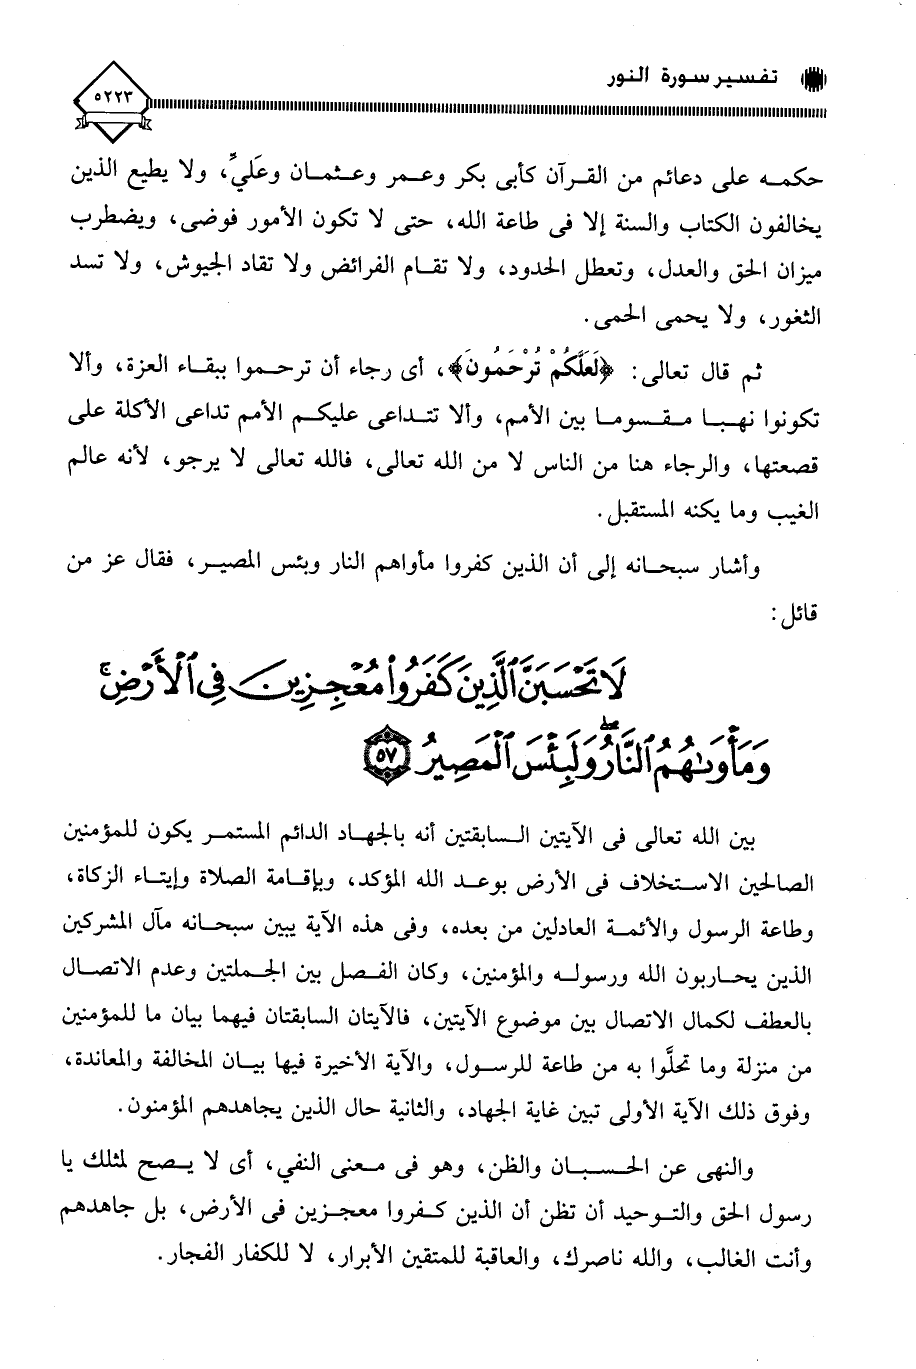 تفسير سورة النور
٥٢٢٣
حكمه على دعائم من القرآن كأبى بكر وعمر وعثمان وعَليٍّ، ولا يطيع الذين
يخالفون الكتاب والسنة إلا فى طاعة الله، حتى لا تكون الأمور فوضى، ويضطرب
ميزان الحق والعدل، وتعطل الحدود، ولا تقام الفرائض ولا تقاد الجيوش، ولا تسد
الثغور، ولا يحمى الحمى.
ثم قال تعالى: ﴿لَعَلَّكُمْ تُرْحَمُونَ﴾، أى رجاء أن ترحموا ببقاء العزة، وألا
تكونوا نهبا مقسوما بين الأمم، وألا تتداعى عليكم الأمم تداعى الأكلة على
قصعتها، والرجاء هنا من الناس لا من الله تعالى، فالله تعالى لا يرجو، لأنه عالم
الغيب وما يكنه المستقبل.
وأشار سبحانه إلى أن الذين كفروا مأواهم النار وبئس المصير، فقال عز من
قائل:
لَا تَحْسَبَنَّ ٱلَّذِينَ كَفَرُوا۟ مُعْجِزِينَ فِى ٱلْأَرْضِ ۚ
وَمَأْوَىٰهُمُ ٱلنَّارُ ۖ وَلَبِئْسَ ٱلْمَصِيرُ ٥٧
بين الله تعالى فى الآيتين السابقتين أنه بالجهاد الدائم المستمر يكون للمؤمنين
الصالحين الاستخلاف فى الأرض بوعد الله المؤكد، وبإقامة الصلاة وإيتاء الزكاة،
وطاعة الرسول والأئمة العادلين من بعده، وفى هذه الآية يبين سبحانه مآل المشركين
الذين يحاربون الله ورسوله والمؤمنين، وكان الفصل بين الجملتين وعدم الاتصال
بالعطف لكمال الاتصال بين موضوع الآيتين، فالآيتان السابقتان فيهما بيان ما للمؤمنين
من منزلة وما تحلَّوا به من طاعة للرسول، والآية الأخيرة فيها بيان المخالفة والمعاندة،
وفوق ذلك الآية الأولى تبين غاية الجهاد، والثانية حال الذين يجاهدهم المؤمنون.
والنهى عن الحسبان والظن، وهو فى معنى النفي، أى لا يصح لمثلك يا
رسول الحق والتوحيد أن تظن أن الذين كفروا معجزين فى الأرض، بل جاهدهم
وأنت الغالب، والله ناصرك، والعاقبة للمتقين الأبرار، لا للكفار الفجار.